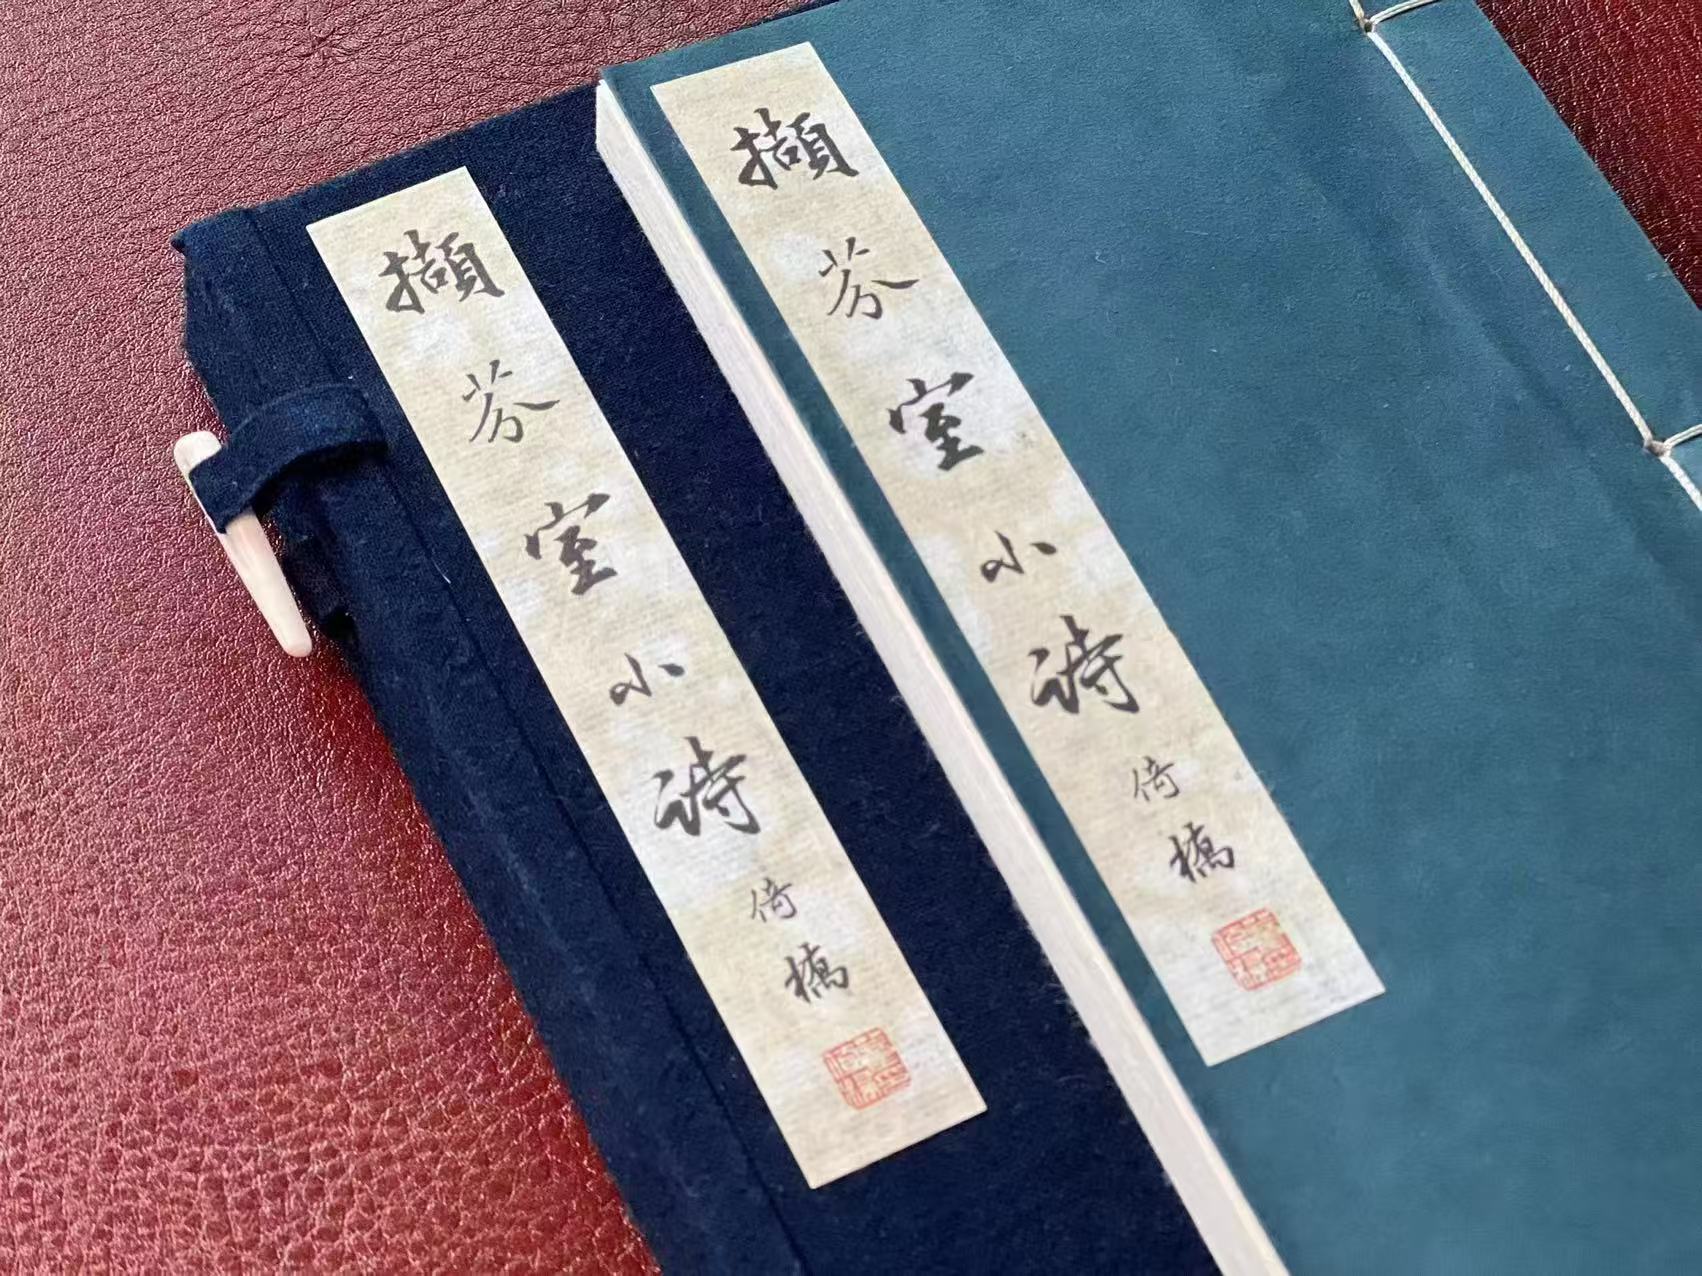 擷芬室小詩
倚橋
擷芬室小詩
倚橋